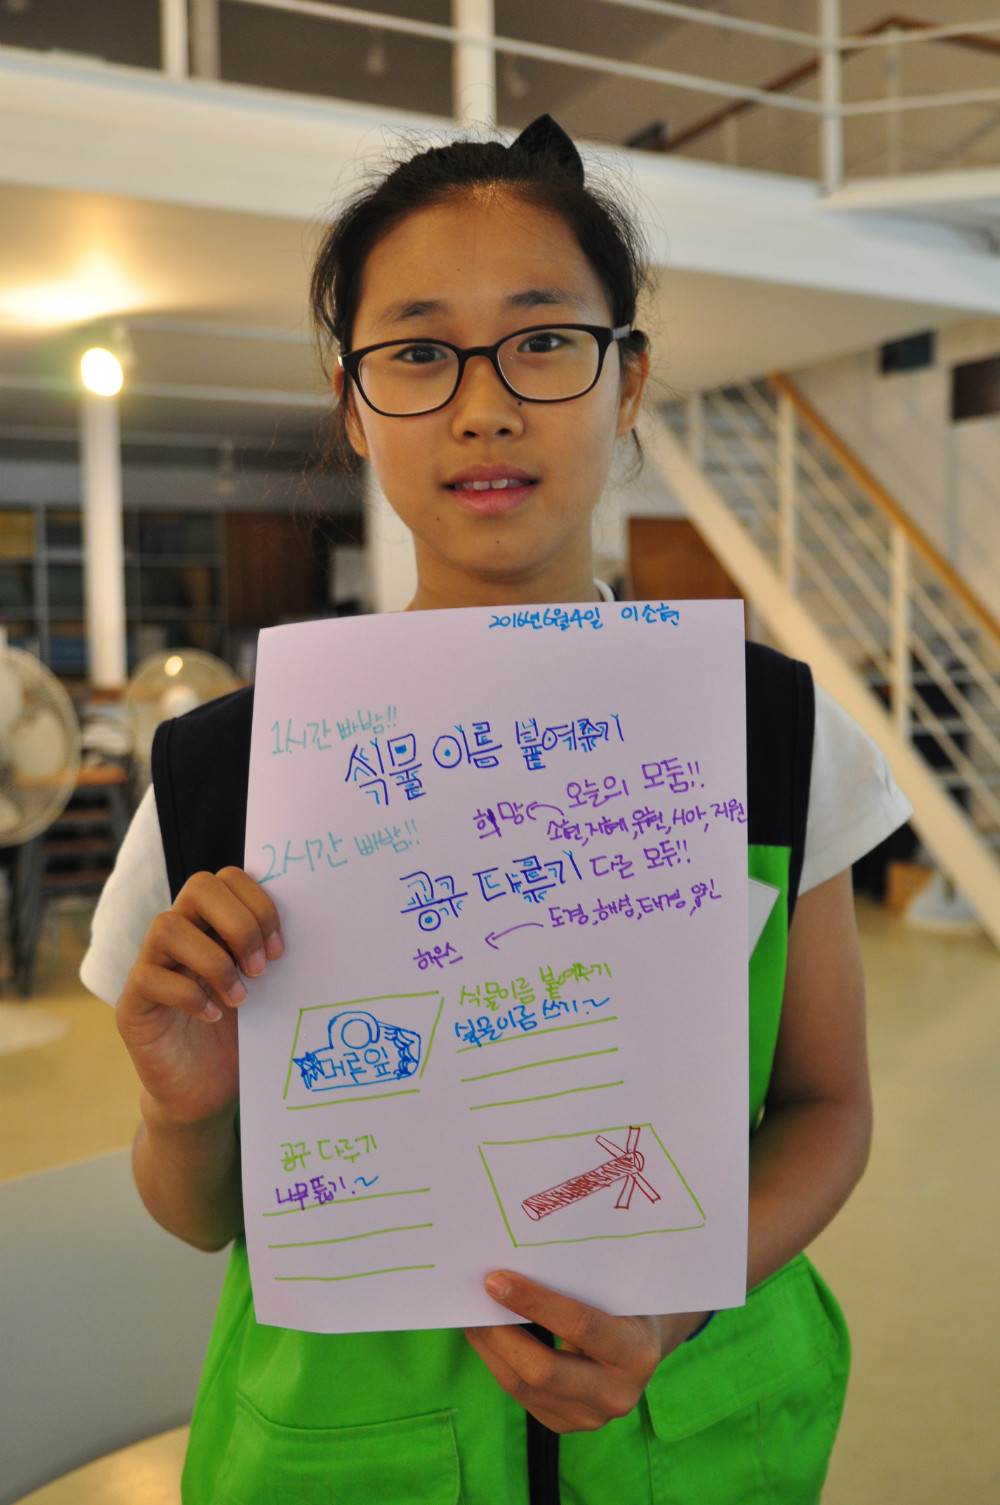 2016년 6월 4일 이소현
1시간 빠밤!!
식물 이름 붙여주기
오늘의 모둠!!
희망
소현, 지혜, 유현, 시아, 지원
2시간 빠밤!!
공구 다루기
다른 모둠!!
도경, 해성, 태경,
하우스
식물이름 붙여주기
식물이름 쓰기.~
머루잎
공구 다루기
나무뚫기.~